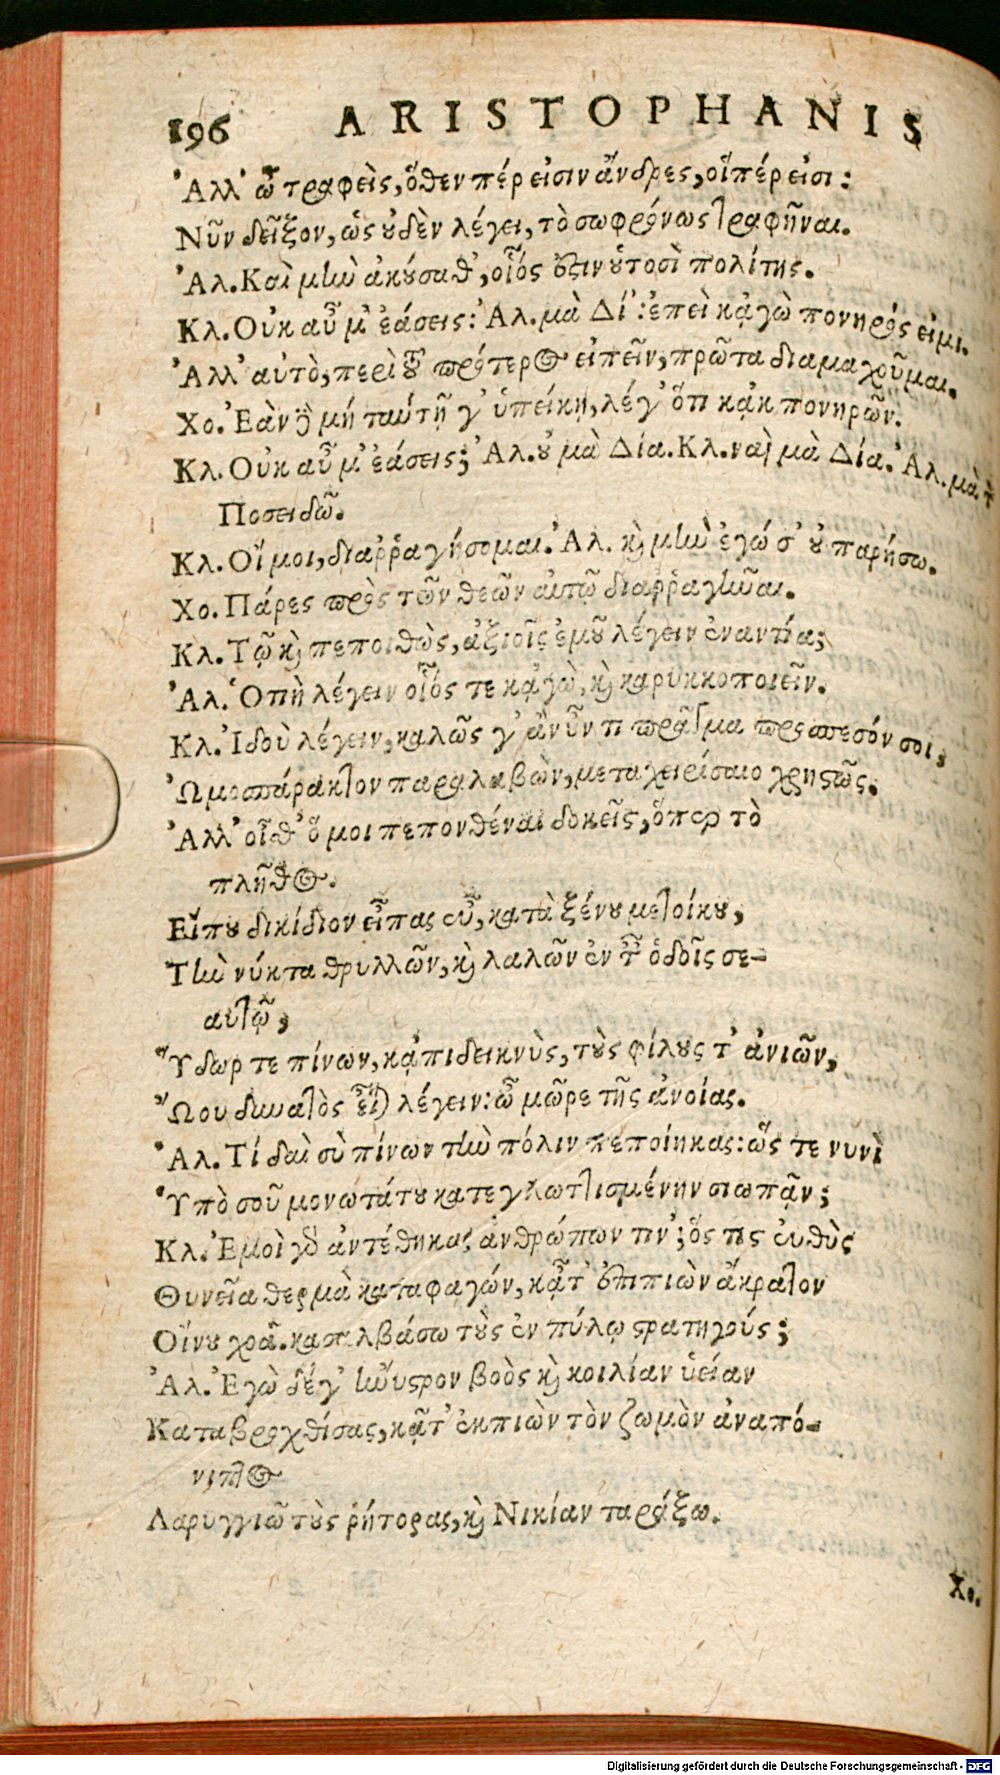 196 ARISTOPHANIS
Ἀλλ' ὦ τραφεὶς, ὅθεν πέρ εἰσιν ἄνδρες, οἵπέρ εἰσι:
Νῦν δεῖξον, ὡς οὐδὲν λέγει, τὸ σωφρόνως τραφῆναι.
Ἀλ. Καὶ μὴν ἀκούσαθ', οἷός ἐστιν οὑτοσὶ πολίτης.
Κλ. Οὐκ αὖ μ' ἐάσεις: Ἀλ. μὰ Δί': ἐπεὶ κᾀγὼ πονηρός εἰμι.
Ἀλλ' αὐτὸ, περὶ τοῦ πρότερος εἰπεῖν, πρῶτα διαμαχοῦμαι.
Χο. Ἐὰν δὲ μή ταύτῃ γ' ὑπείκῃ, λέγ' ὅτι κᾀκ πονηρῶν.
Κλ. Οὐκ αὖ μ' ἐάσεις; Ἀλ. οὐ μὰ Δία. Κλ. ναὶ μὰ Δία. Ἀλ. μὰ τὸν
Ποσειδῶ.
Κλ. Οἴ μοι, διαῤῥαγήσομαι. Ἀλ. καὶ μὴν ἐγώ σ' οὐ παρήσω.
Χο. Πάρες πρὸς τῶν θεῶν αὐτῷ διαῤῥαγῆναι.
Κλ. Τῷ καὶ πεποιθὼς, ἀξιοῖς ἐμοῦ λέγειν ἐναντία;
Ἀλ. Ὁπὴ λέγειν οἷός τε κᾀγὼ, καὶ καρυκκοποιεῖν.
Κλ. Ἰδοὺ λέγειν, καλῶς γ' ἂν οὖν τι πρᾶγμα προσπεσόν σοι,
Ὠμοσπάρακτον παραλαβὼν, μεταχειρίσαιο χρηστῶς.
Ἀλλ' οἶθ' ὅ μοι πεπονθέναι δοκεῖς, ὅπερ τὸ
πλῆθος.
Εἴ που δικίδιον εἶπας εὖ, κατὰ ξένου μετοίκου,
Τὴν νύκτα θρυλλῶν, καὶ λαλῶν ἐν ταῖς ὁδοῖς σε-
αυτῷ,
Ὕδωρ τε πίνων, κᾀπιδεικνὺς, τοὺς φίλους τ' ἀνιῶν,
Ὤου δυνατὸς εἶναι λέγειν: ὦ μῶρε τῆς ἀνοίας.
Ἀλ. Τί δαὶ σὺ πίνων τὴν πόλιν πεποίηκας: ὥς τε νυνὶ
Ὑπὸ σοῦ μονωτάτου κατεγλωττισμένην σιωπᾷν;
Κλ. Ἐμοὶ γὰρ ἀντέθηκας ἀνθρώπων τιν'; ὅς τις εὐθὺς
Θυνεῖα θερμὰ καταφαγών, κᾆτ' ἐπιπιὼν ἄκρατον
Οἴνου χοᾶ. κασαλβάσω τοὺς ἐν πύλῳ στρατηγούς;
Ἀλ. Ἐγὼ δέ γ' ἤνυστρον βοὸς καὶ κοιλίαν ὑείαν
Καταβροχθίσας, κᾆτ' ἐκπιὼν τὸν ζωμὸν ἀναπό-
νιπτος
Λαρυγγιῶ τοὺς ῥήτορας, καὶ Νικίαν ταράξω.
Χο.
Digitalisierung gefördert durch die Deutsche Forschungsgemeinschaft - DFG